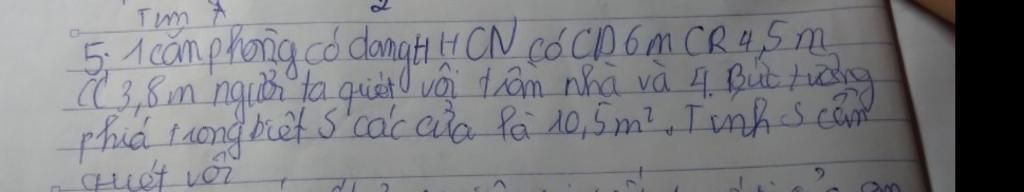 Tìm x
2
5. 1 căn phòng có dạng H HCN có CD 6m CR 4,5m
CC 3,8m người ta quét vôi trần nhà và 4 Bức tường
phía trong biết S các cửa là 10,5m². Tính S cần
quét vôi